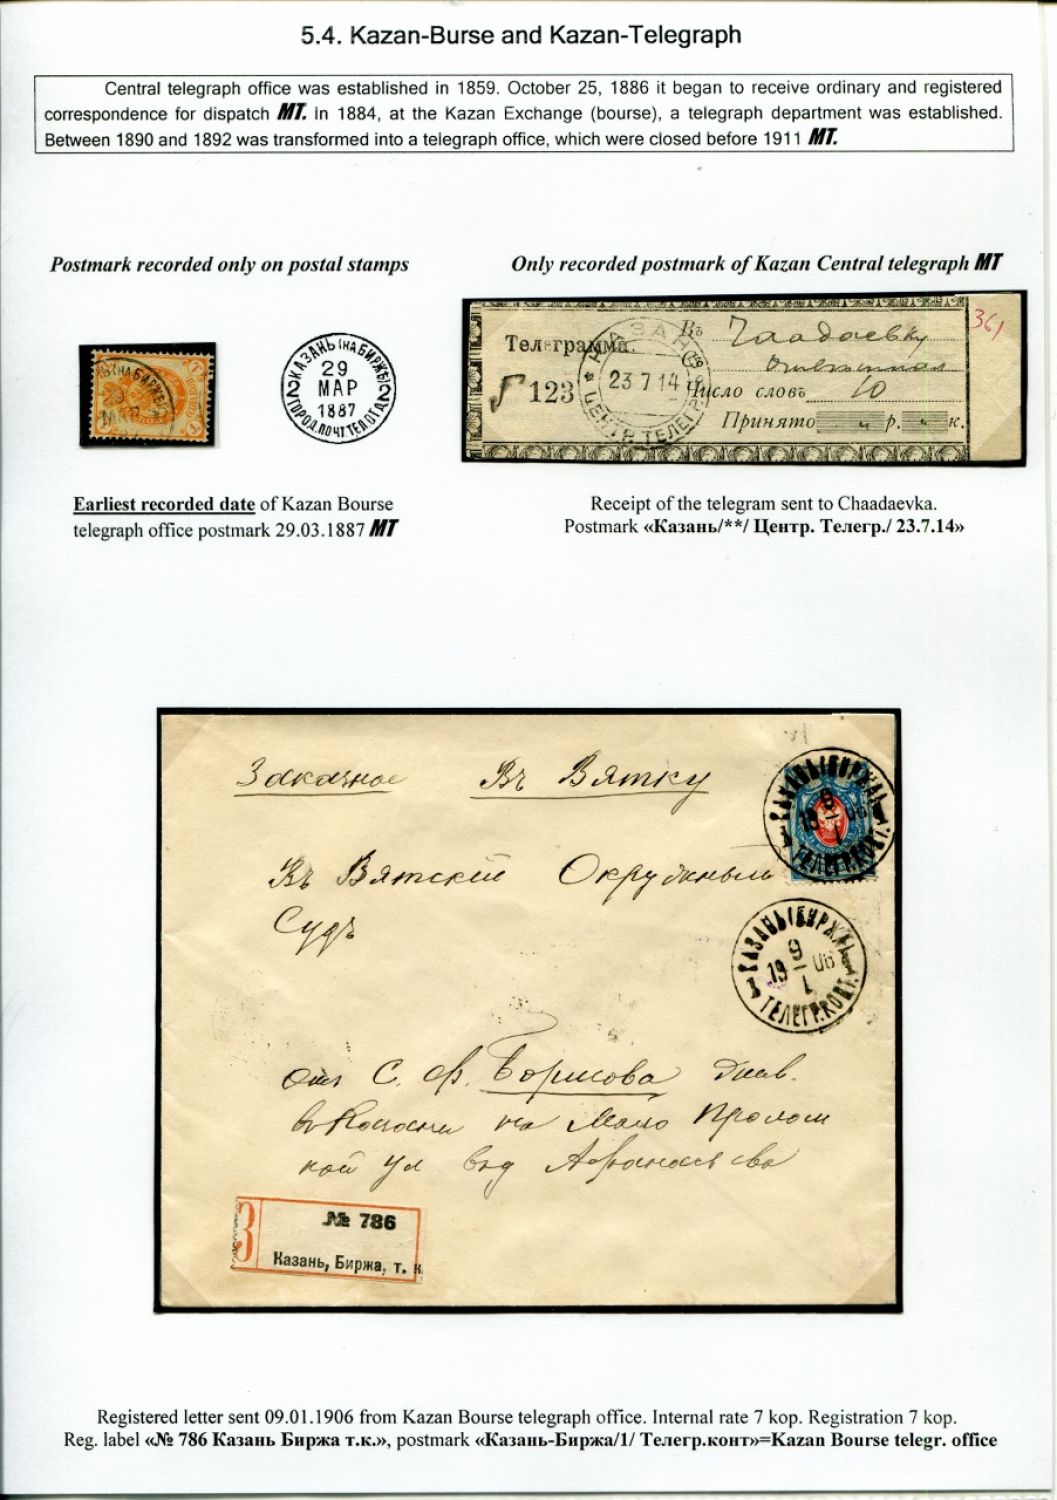 5.4. Kazan-Burse and Kazan-Telegraph
Central telegraph office was established in 1859. October 25, 1886 it began to receive ordinary and registered
correspondence for dispatch MT. In 1884, at the Kazan Exchange (bourse), a telegraph department was established.
Between 1890 and 1892 was transformed into a telegraph office, which were closed before 1911 MT.
Postmark recorded only on postal stamps
КАЗАНЬ (НА БИРЖѢ)
29
МАР
1887
2 ГОРОД.ПОЧТ.ТЕЛ.ОТД. 2
Earliest recorded date of Kazan Bourse
telegraph office postmark 29.03.1887 MT
Only recorded postmark of Kazan Central telegraph MT
361
Въ Чаадаевку
Телеграмма.
123
Число словъ 10
Принято р. к.
КАЗАНЬ
23 7 14
ЦЕНТР. ТЕЛЕГР.
Receipt of the telegram sent to Chaadaevka.
Postmark «Казань/**/ Центр. Телегр./ 23.7.14»
Заказное Въ Вятку
Въ Вятский Окружный
Судъ
КАЗАНЬ (БИРЖА)
9
19 06
1
ТЕЛЕГР.КОНТ.
КАЗАНЬ (БИРЖА)
9
19 06
1
ТЕЛЕГР.КОНТ.
отъ С. Ф. Борисова
в Казани на Мало Пролом
ной ул
З
№ 786
Казань, Биржа, т. к
Registered letter sent 09.01.1906 from Kazan Bourse telegraph office. Internal rate 7 kop. Registration 7 kop.
Reg. label «№ 786 Казань Биржа т.к.», postmark «Казань-Биржа/1/ Телегр.конт»=Kazan Bourse telegr. office